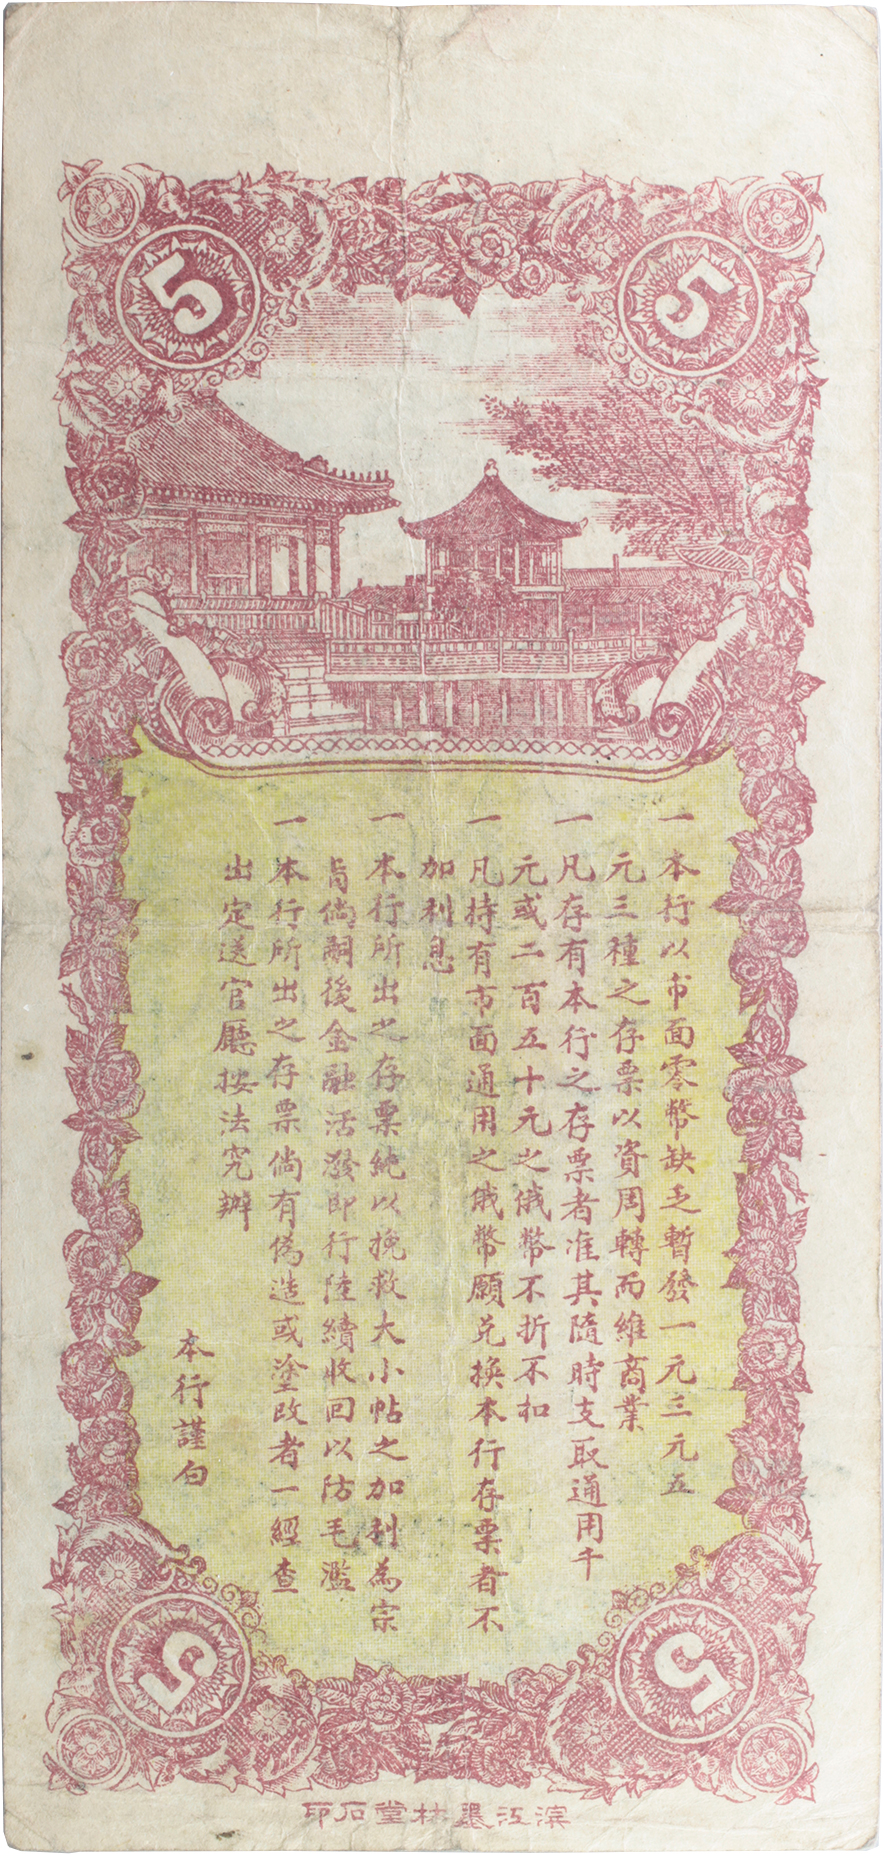 5
5
一本行以市面零幣缺乏暫發一元三元五
元三種之存票以資周轉而維商業
一凡存有本行之存票者准其隨時支取通用千
元或二百五十元之俄幣不折不扣
一凡持有市面通用之俄幣願兌換本行存票者不
加利息
一本行所出之存票純以挽救大小帖之加利為宗
旨倘嗣後金融活潑即行陸續收回以防毛濫
一本行所出之存票倘有偽造或塗改者一經查
出定送官廳按法究辦
本行謹白
5
5
濱江墨林堂石印